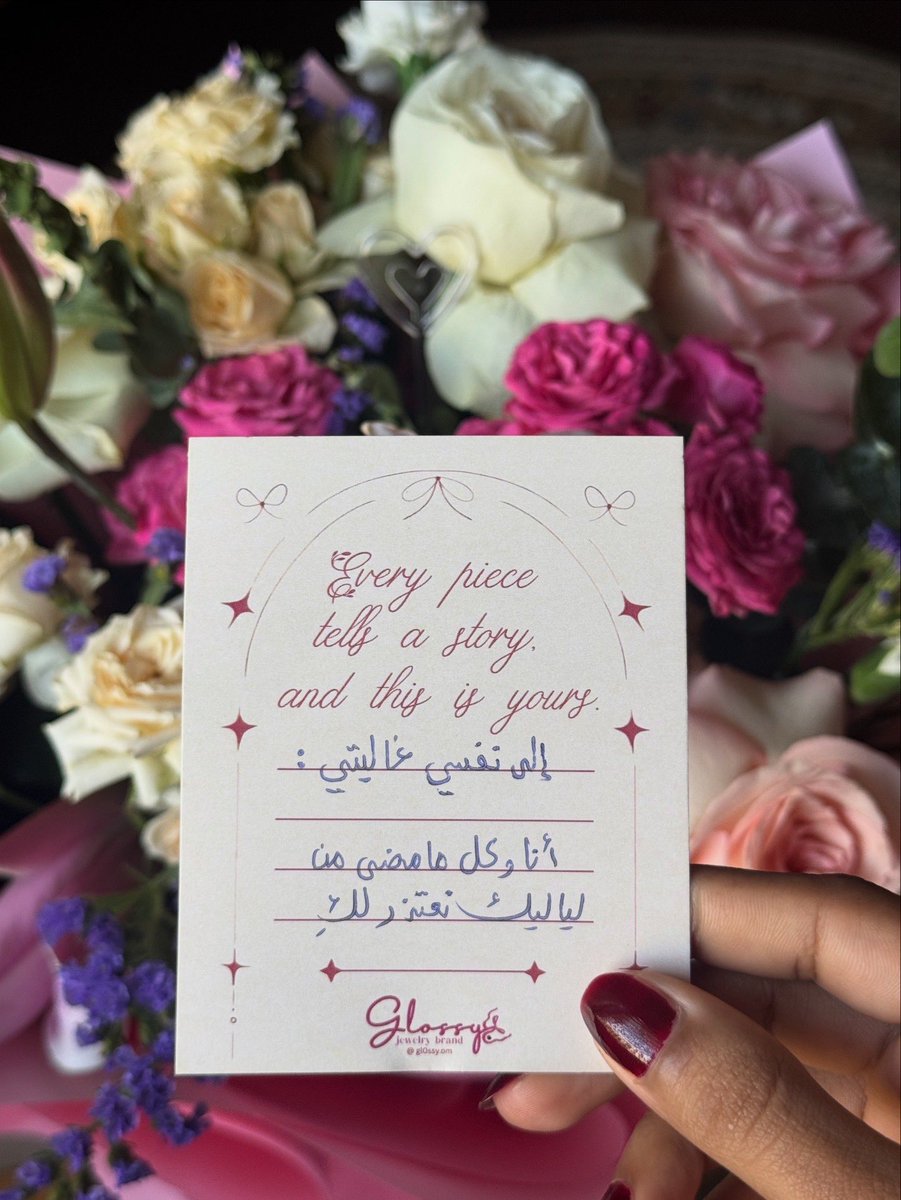 Every piece
tells a story,
and this is yours.
إلى نفسي غاليتي :
أنا وكل ما مضى من
لياليك نعتذر لكِ
Glossy
jewelry brand
@ gl0ssy.om